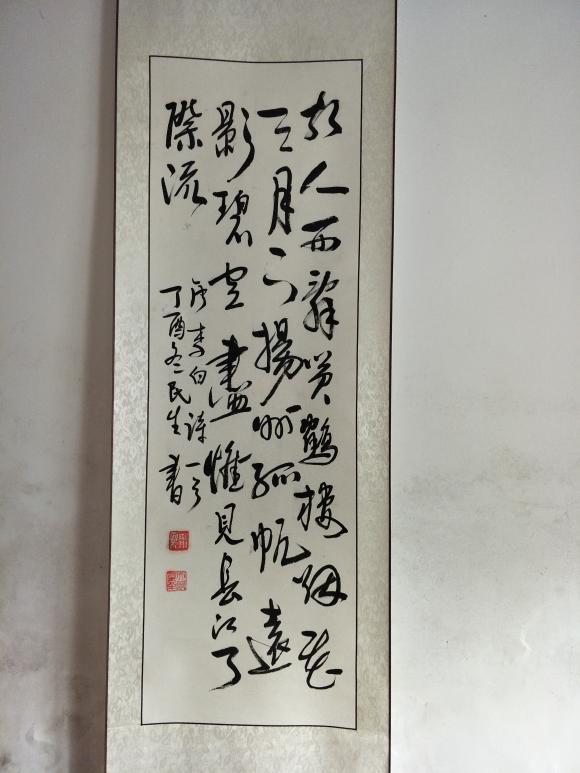 故人西辭黃鶴樓烟花
三月下揚州孤帆遠
影碧空盡惟見長江天
際流
唐李白詩一首
丁酉冬民生書